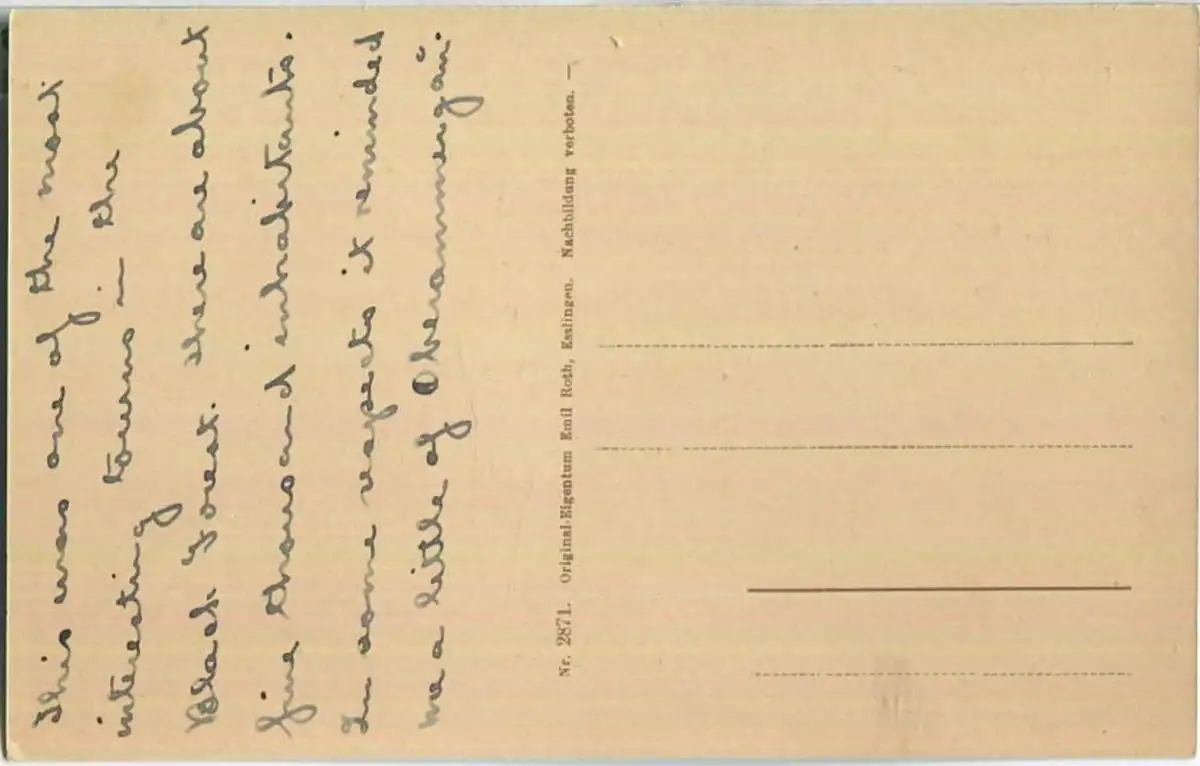 This was one of the most
interesting towns in the
Black Forest. There are about
five thousand inhabitants.
In some respects it reminded
me a little of Oberammergau.
Nr. 2871. Original-Eigentum Emil Roth, Esslingen. Nachbildung verboten. —